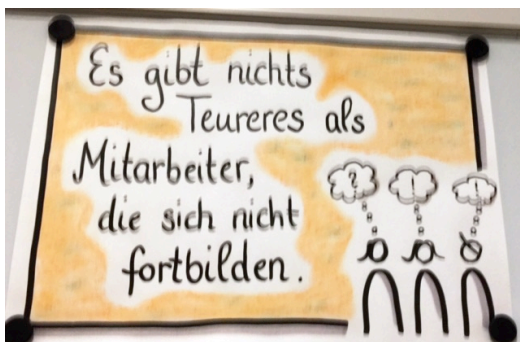 Es gibt nichts
Teureres als
Mitarbeiter,
die sich nicht
fortbilden.
? ! !